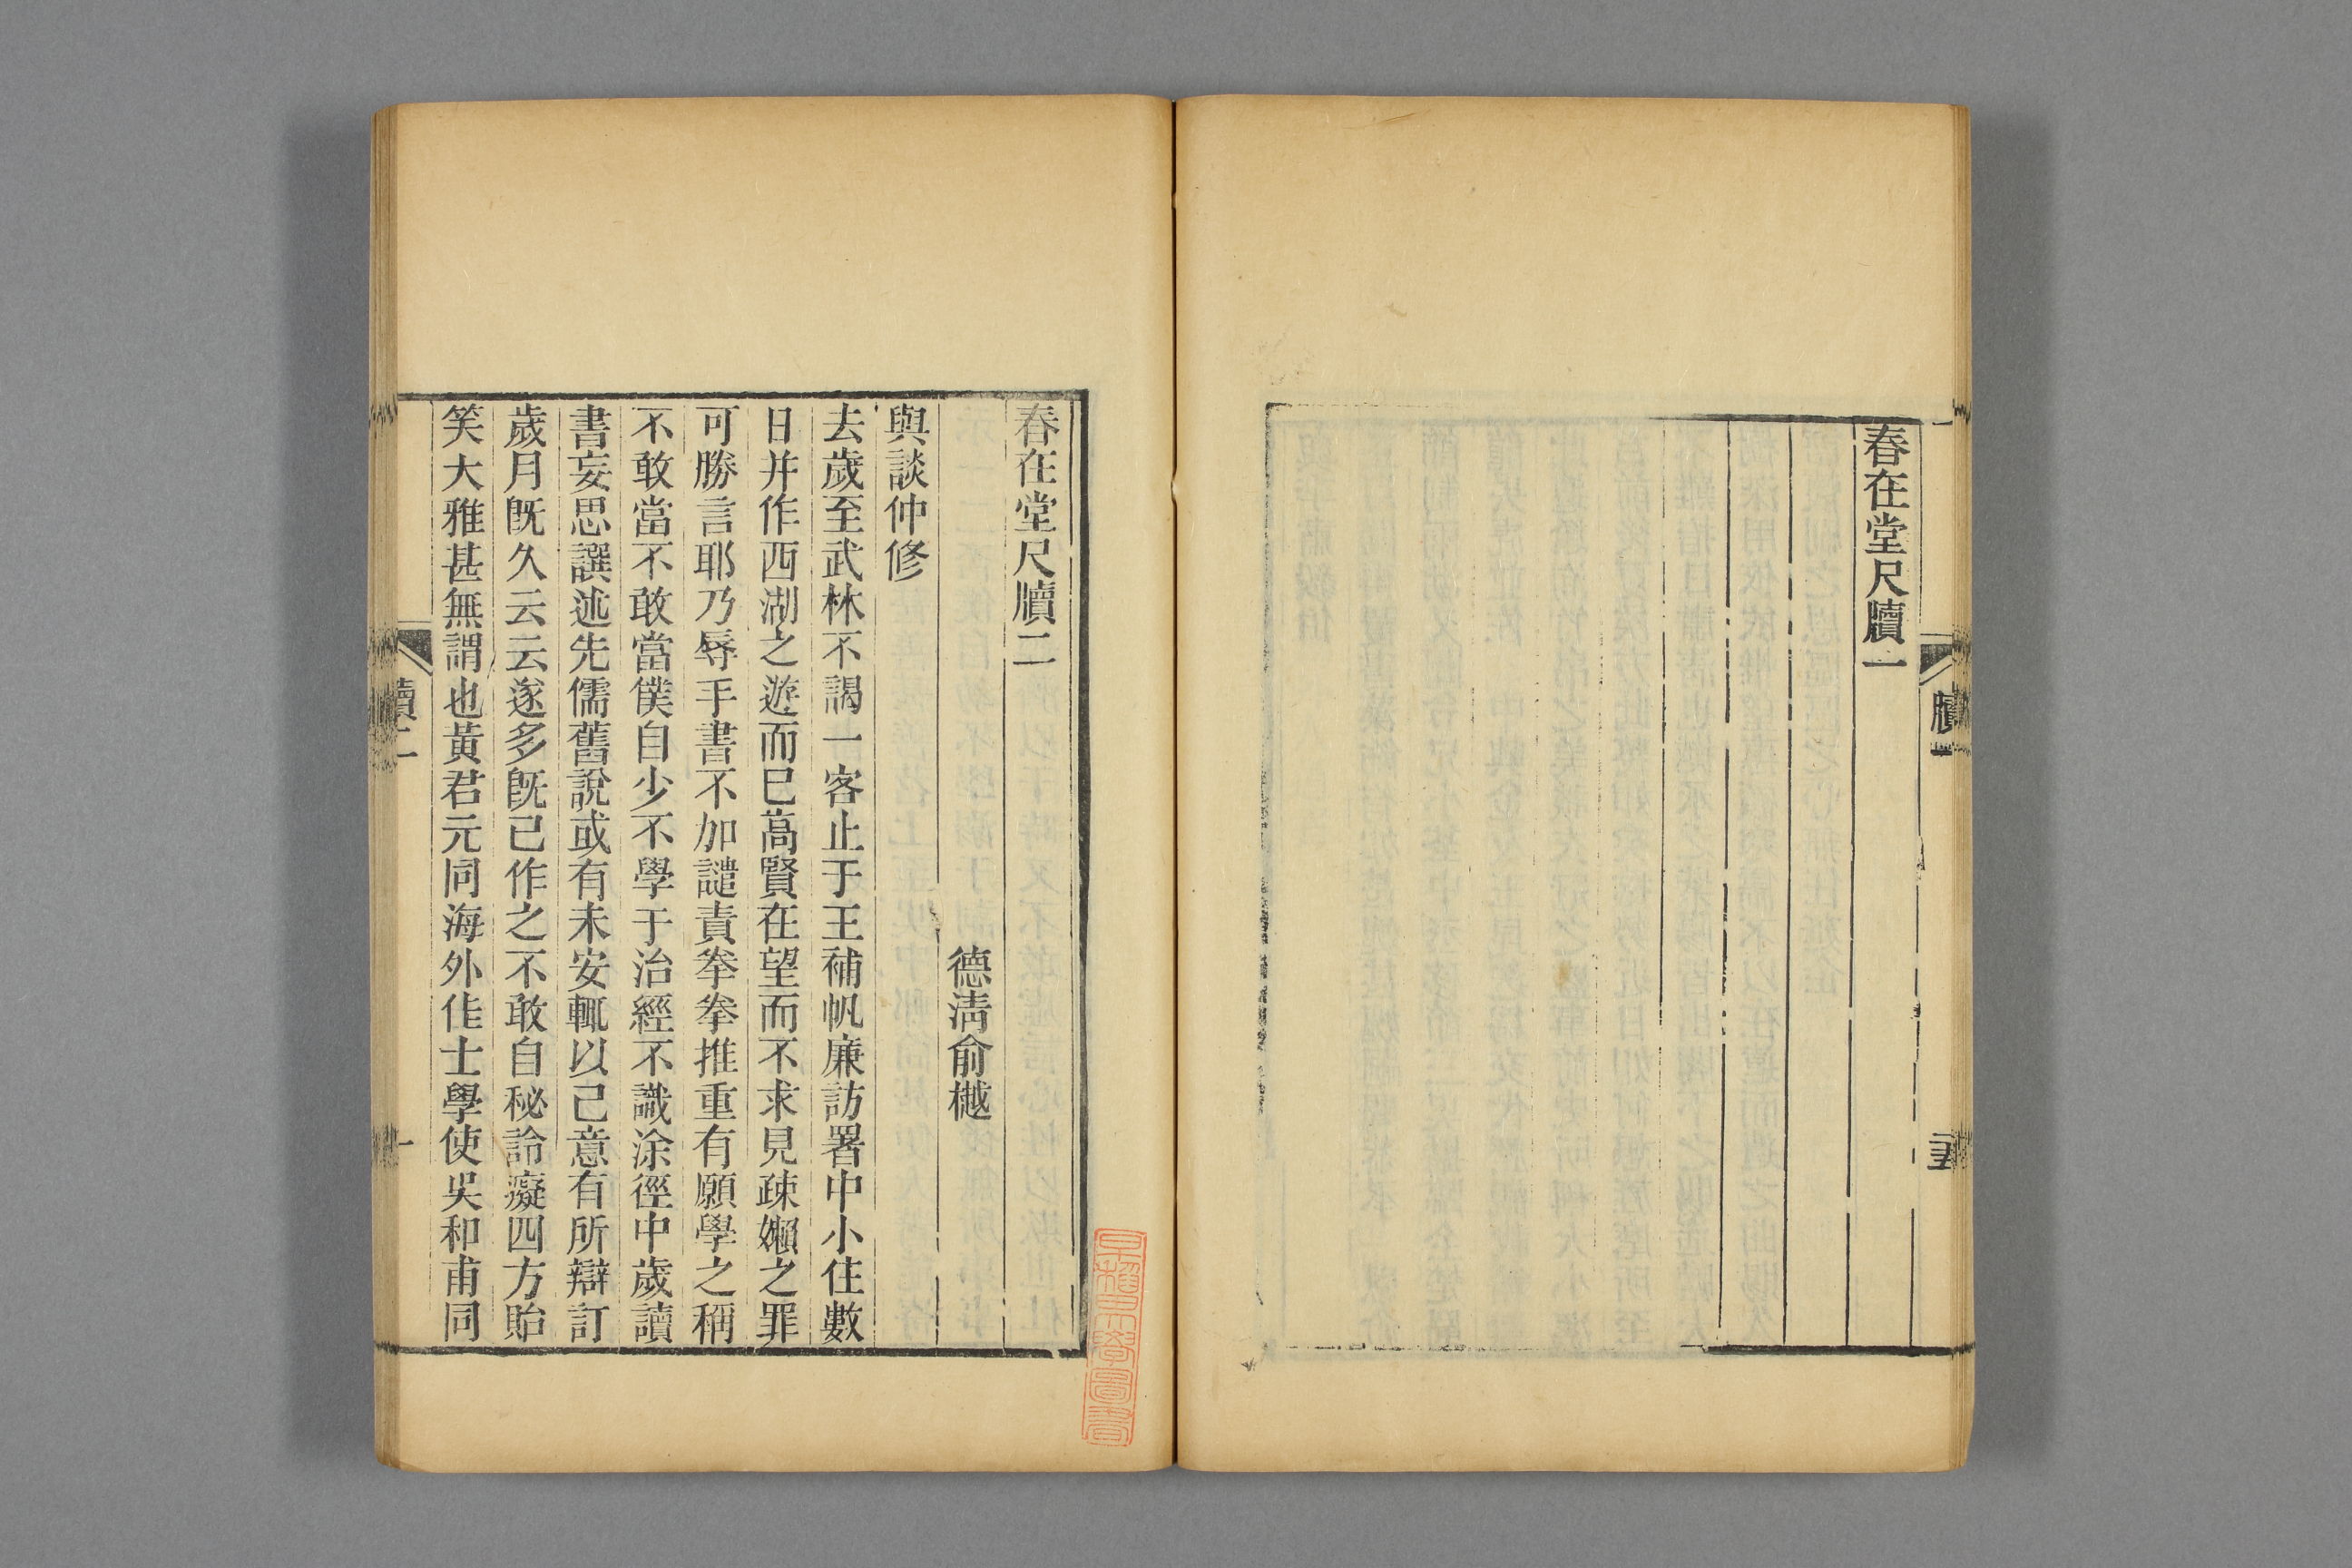 春在堂尺牘一
牘一
春在堂尺牘二
德淸俞樾
與談仲修
去歲至武林不謁一客止于王補帆廉訪署中小住數
日并作西湖之遊而已高賢在望而不求見疎嬾之罪
可勝言耶乃辱手書不加譴責拳拳推重有願學之稱
不敢當不敢當僕自少不學于治經不識涂徑中歲讀
書妄思譔述先儒舊說或有未安輒以己意有所辯訂
歲月旣久云云遂多旣已作之不敢自秘詅癡四方貽
笑大雅甚無謂也黃君元同海外佳士學使吳和甫同
牘二
一